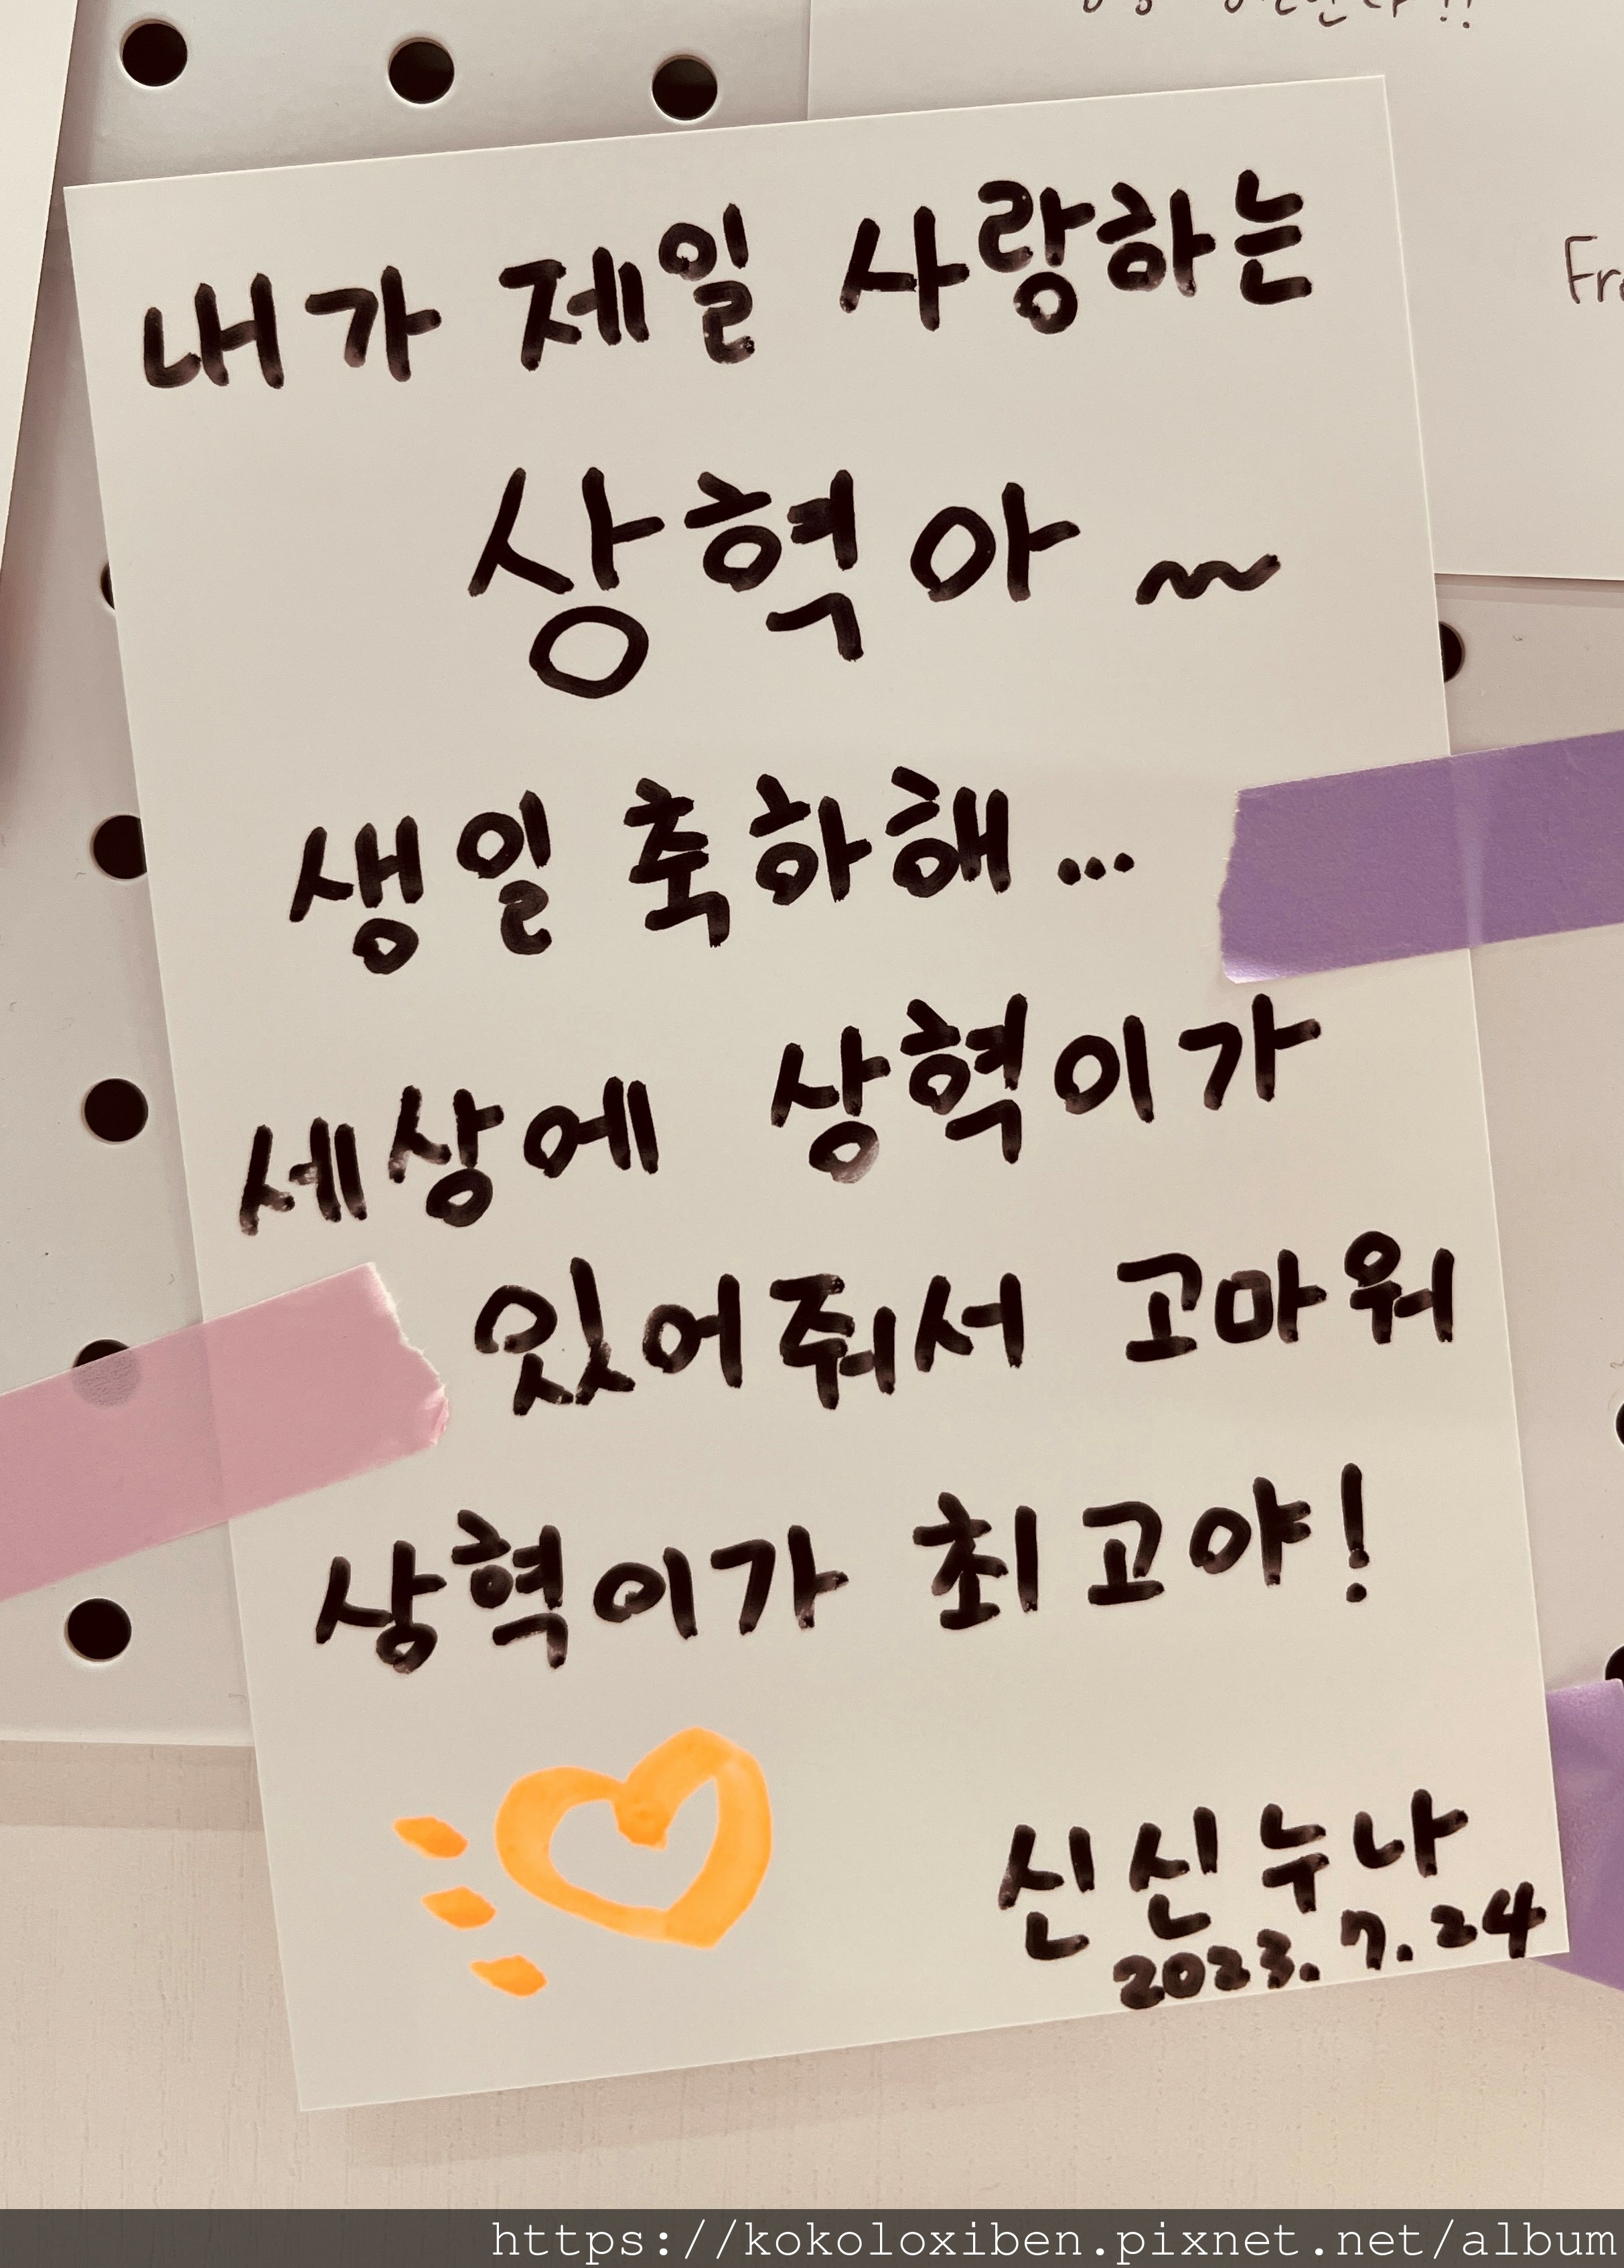 내가 제일 사랑하는
상혁아~
생일 축하해...
세상에 상혁이가
있어줘서 고마워
상혁이가 최고야!
신신누나
2023. 7. 24
https://kokoloxiben.pixnet.net/album